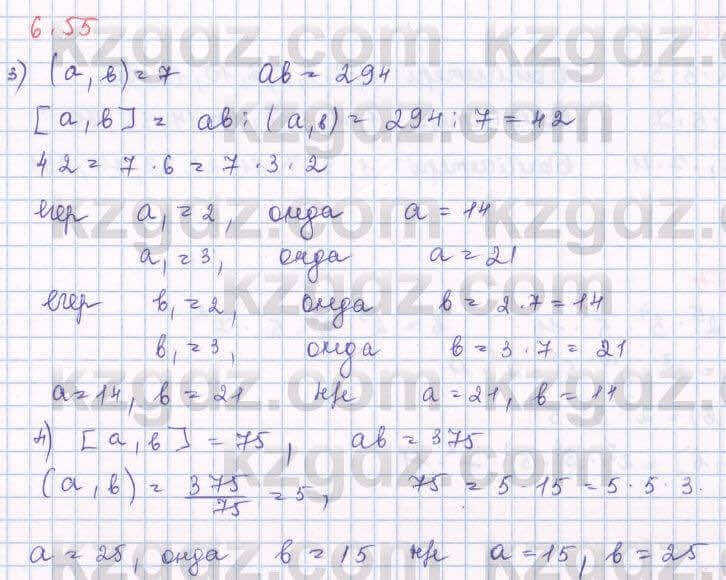 6.55
3) (a, b) = 7 ab = 294
[a, b] = ab : (a, b) = 294 : 7 = 42
42 = 7 · 6 = 7 · 3 · 2
егер a₁ = 2, онда a = 14
a₁ = 3, онда a = 21
егер b₁ = 2, онда b = 2 · 7 = 14
b₁ = 3, онда b = 3 · 7 = 21
a = 14, b = 21 не a = 21, b = 14
4) [a, b] = 75, ab = 375
(a, b) = 375/75 = 5, 75 = 5 · 15 = 5 · 5 · 3.
a = 25, онда b = 15 не a = 15, b = 25
kzgdz.com